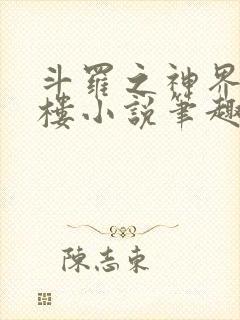 斗羅之神界
樓小說筆趣
陳志東